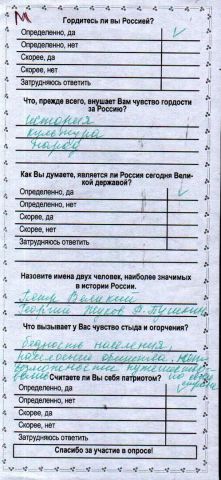 М
Гордитесь ли вы Россией?
Определенно, да ✓
Определенно, нет
Скорее, да
Скорее, нет
Затрудняюсь ответить
Что, прежде всего, внушает Вам чувство гордости
за Россию?
история
культура
народ
Как Вы думаете, является ли Россия сегодня Вели-
кой державой?
Определенно, да ✓
Определенно, нет
Скорее, да
Скорее, нет
Затрудняюсь ответить
Назовите имена двух человек, наиболее значимых
в истории России.
Петр Великий
Георгий Жуков А. Пушкин
Что вызывает у Вас чувство стыда и огорчения?
бедность населения,
расслоение общества,
возможность путешествий по своей
стране
Считаете ли Вы себя патриотом?
Определенно, да
Определенно, нет
Скорее, да
Скорее, нет
Затрудняюсь ответить
Спасибо за участие в опросе!